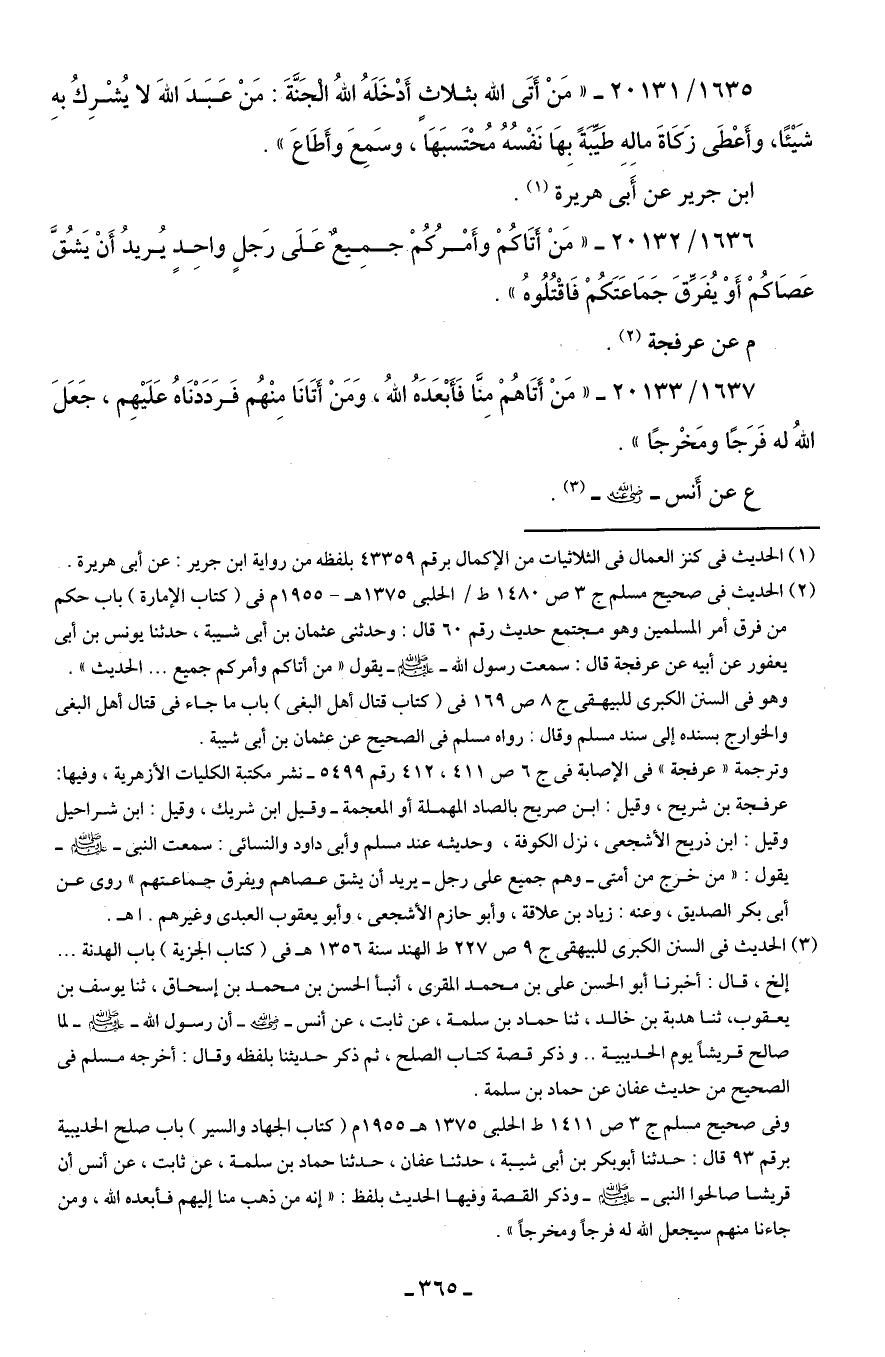 ١٦٣٥/ ٢٠١٣١ ـ « مَنْ أَتَى الله بثلاثٍ أَدْخَلَهُ اللهُ الْجَنَّةَ : مَنْ عَبَدَ اللهَ لا يُشْرِكُ بِهِ
شَيْئًا، وأَعْطَى زَكَاةَ مالِهِ طَيِّبَةً بِهَا نَفْسُهُ مُحْتَسِبَهَا ، وسَمِعَ وأَطَاعَ » .
ابن جرير عن أَبى هريرة (١) .
١٦٣٦/ ٢٠١٣٢ ـ « مَنْ أَتَاكُمْ وأَمْرُكُمْ جمِيعٌ عَلَى رَجلٍ واحِدٍ يُرِيدُ أَنْ يَشُقَّ
عَصَاكُمْ أَوْ يُفَرِّقَ جَمَاعَتَكُمْ فَاقْتُلُوهُ » .
م عن عرفجة (٢) .
١٦٣٧/ ٢٠١٣٣ ـ « مَنْ أَتَاهُمْ مِنَّا فَأَبْعَدَهُ اللهُ ، وَمَنْ أَتَانَا مِنْهُم فَرَدَدْنَاهُ عَلَيْهِم ، جَعَلَ
اللهُ له فَرَجًا ومَخْرجًا » .
ع عن أَنس ـ رضي الله عنه ـ (٣) .
(١) الحديث فى كنز العمال فى الثلاثيات من الإكمال برقم ٤٣٣٥٩ بلفظه من رواية ابن جرير : عن أبى هريرة .
(٢) الحديث فى صحيح مسلم ج ٣ ص ١٤٨٠ ط / الحلبى ١٣٧٥هـ - ١٩٥٥م فى ( كتاب الإمارة ) باب حكم
من فرق أمر المسلمين وهو مجتمع حديث رقم ٦٠ قال : وحدثنى عثمان بن أبى شيبة ، حدثنا يونس بن أبى
يعفور عن أبيه عن عرفجة قال : سمعت رسول الله ـ ﷺ ـ يقول « من أتاكم وأمركم جميع ... الحديث » .
وهو فى السنن الكبرى للبيهقى ج ٨ ص ١٦٩ فى ( كتاب قتال أهل البغى ) باب ما جاء فى قتال أهل البغى
والخوارج بسنده إلى سند مسلم وقال : رواه مسلم فى الصحيح عن عثمان بن أبى شيبة .
وترجمة « عرفجة » فى الإصابة فى ج ٦ ص ٤١١ ، ٤١٢ رقم ٥٤٩٩ ـ نشر مكتبة الكليات الأزهرية ، وفيها:
عرفجة بن شريح ، وقيل : ابن صريح بالصاد المهملة أو المعجمة ـ وقيل ابن شريك ، وقيل : ابن شراحيل
وقيل : ابن ذريح الأشجعى ، نزل الكوفة ، وحديثه عند مسلم وأبى داود والنسائى : سمعت النبى ـ ﷺ ـ
يقول : « من خرج من أمتى ـ وهم جميع على رجل ـ يريد أن يشق عصاهم ويفرق جماعتهم » روى عن
أبى بكر الصديق ، وعنه : زياد بن علاقة ، وأبو حازم الأشجعى ، وأبو يعقوب العبدى وغيرهم . اهـ .
(٣) الحديث فى السنن الكبرى للبيهقى ج ٩ ص ٢٢٧ ط الهند سنة ١٣٥٦ هـ فى ( كتاب الجزية ) باب الهدنة ...
إلخ ، قال : أخبرنا أبو الحسن على بن محمد المقرى ، أنبأ الحسن بن محمد بن إسحاق ، ثنا يوسف بن
يعقوب، ثنا هدبة بن خالد ، ثنا حماد بن سلمة ، عن ثابت ، عن أنس ـ رضي الله عنه ـ أن رسول الله ـ ﷺ ـ لما
صالح قريشاً يوم الحديبية .. و ذكر قصة كتاب الصلح ، ثم ذكر حديثنا بلفظه وقال : أخرجه مسلم فى
الصحيح من حديث عفان عن حماد بن سلمة .
وفى صحيح مسلم ج ٣ ص ١٤١١ ط الحلبى ١٣٧٥ هـ ١٩٥٥م ( كتاب الجهاد والسير ) باب صلح الحديبية
برقم ٩٣ قال : حدثنا أبوبكر بن أبى شيبة ، حدثنا عفان ، حدثنا حماد بن سلمة ، عن ثابت ، عن أنس أن
قريشا صالحوا النبى ـ ﷺ ـ وذكر القصة وفيها الحديث بلفظ : « إنه من ذهب منا إليهم فأبعده الله ، ومن
جاءنا منهم سيجعل الله له فرجاً ومخرجاً » .
ـ ٣٦٥ ـ